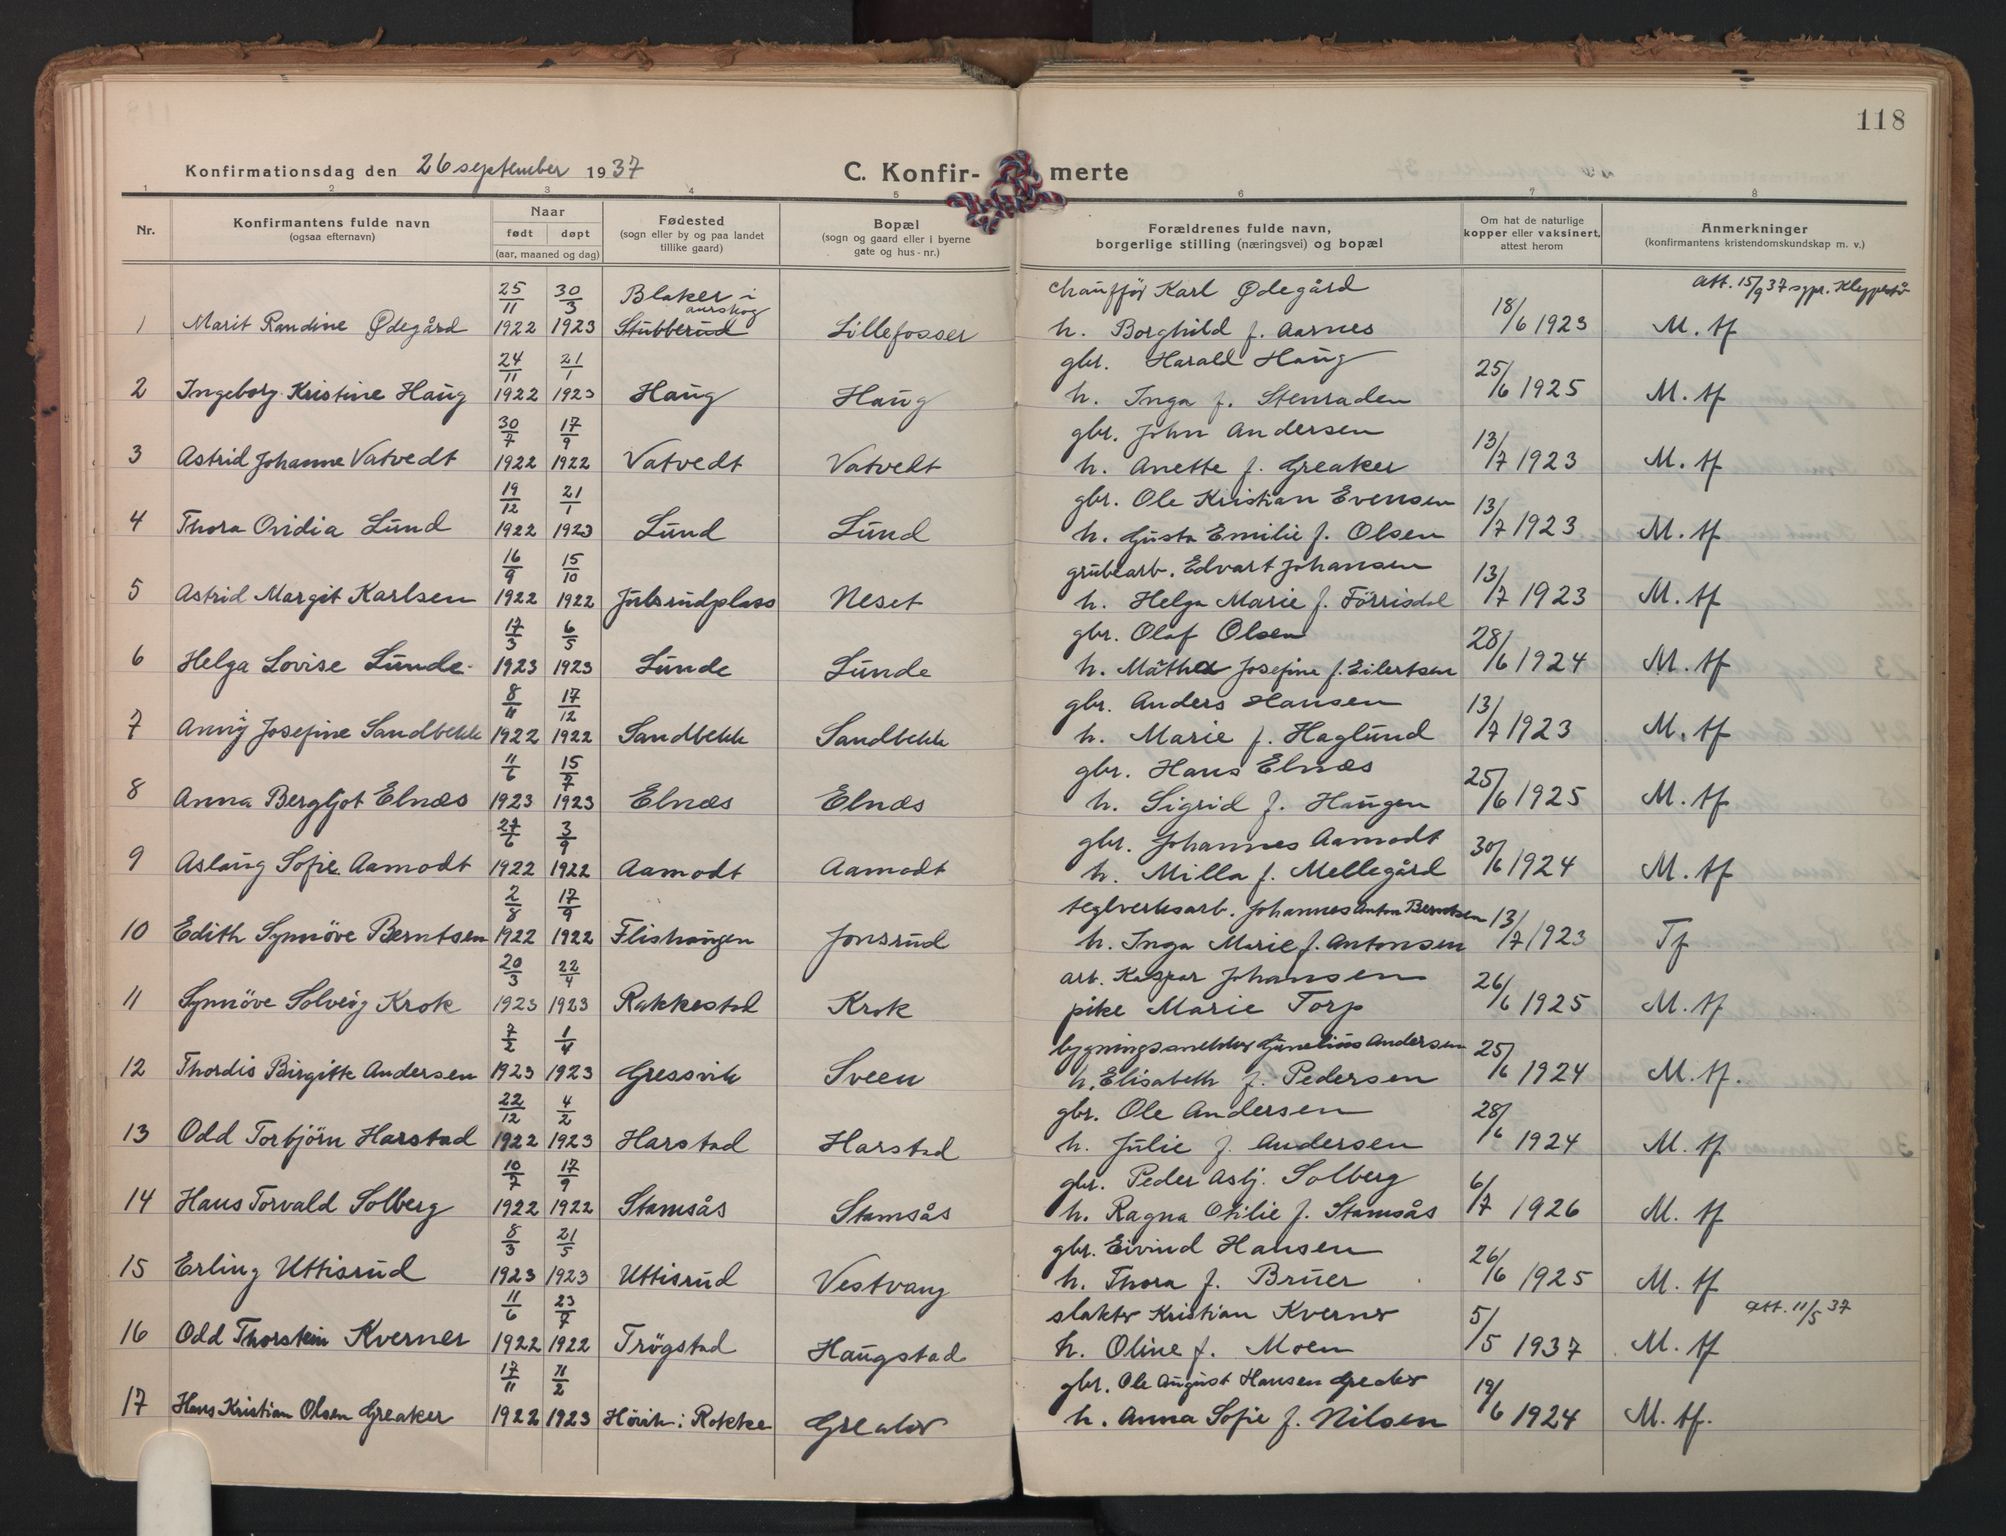 118
Konfirmationsdag den 26 september 1937 C. Konfir- merte
1 2 3 4 5 6 7 8
Nr. Konfirmantens fulde navn (ogsaa efternavn) Naar født døpt (aar, maaned og dag) Fødested (sogn eller by og paa landet tillike gaard) Bopæl (sogn og gaard eller i byerne gate og hus-nr.) Forældrenes fulde navn, borgerlige stilling (næringsvei) og bopæl Om hat de naturlige kopper eller vaksinert, attest herom Anmerkninger (konfirmantens kristendomskundskap m. v.)
25/11 30/3 Blaker i aurskog chauffør Karl Ødegård Att. 15/9 37 sgpr.
1 Marit Randine Ødegård 1922 1923 Stubberud Lillefosser h. Borghild f. Aarnes 18/6 1923 M. tf
24/11 21/1 gbr. Harald Haug
2 Ingeborg Kristine Haug 1922 1923 Haug Haug h. Inga f. Stenraden 25/6 1925 M. tf
30/7 17/9 gbr. John Andersen
3 Astrid Johanne Vatvedt 1922 1922 Vatvedt Vatvedt h. Anette f. Greaker 13/7 1923 M. tf
19/12 21/1 gbr. Ole Kristian Evensen
4 Thora Ovidia Lund 1922 1923 Lund Lund h. Gusta Emilie f. Olsen 13/7 1923 M. tf
16/9 15/10 grubearb. Edvart Johansen
5 Astrid Margit Karlsen 1922 1922 Julsrudplass Neset h. Helga Marie f. Förrisdal 13/7 1923 M. tf
17/3 6/5 gbr. Olaf Olsen
6 Helga Lovise Lunde 1923 1923 Lunde Lunde h. Mathea Josefine f. Eilertsen 28/6 1924 M. tf
8/11 17/12 gbr. Anders Hansen
7 Anny Josefine Sandbekk 1922 1922 Sandbekk Sandbekk h. Marie f. Haglund 13/7 1923 M. tf
11/6 15/7 gbr. Hans Elnæs
8 Anna Bergljot Elnæs 1923 1923 Elnæs Elnæs h. Sigrid f. Haugen 25/6 1925 M. tf
27/6 3/9 gbr. Johannes Aamodt
9 Aslaug Sofie Aamodt 1922 1922 Aamodt Aamodt h. Milla f. Mellegård 30/6 1924 M. tf
2/8 17/9 teglverksarb. Johannes Anton Berntsen
10 Edith Synnöve Berntsen 1922 1922 Flishaugen Jonsrud h. Inga Marie f. Antonsen 13/7 1923 Tf
20/3 22/4 arb. Kaspar Johansen
11 Synnöve Solveig Krok 1923 1923 Rakkestad Krok pike Marie Torp 26/6 1925 M. tf
7/2 1/4 bygningssnekker Gunelius Andersen
12 Thordis Birgitte Andersen 1923 1923 Gressvik Sveen h. Elisabeth f. Pedersen 25/6 1924 M. tf.
22/12 4/2 gbr. Ole Andersen
13 Odd Torbjörn Harstad 1922 1923 Harstad Harstad h. Julie f. Andersen 28/6 1924 M. tf
10/7 17/9 gbr. Peder Asbj. Solberg
14 Hans Torvald Solberg 1922 1922 Stamsås Stamsås h. Ragna Otilie f. Stamsås 6/7 1926 M. tf
8/3 21/5 gbr. Eivind Hansen
15 Erling Uttisrud 1923 1923 Uttisrud Vestvang h. Thora f. Bruer 26/6 1925 M. tf
11/6 23/7 slakter Kristian Kverner att. 11/5 37
16 Odd Thorstein Kverner 1922 1922 Trögstad Haugstad h. Oline f. Moen 5/5 1937 M. tf
17/11 11/2 gbr. Ole August Hansen Greaker
17 Hans Kristian Olsen Greaker 1922 1923 Hörik i Rokke Greaker h. Anna Sofie f. Nilsen 19/6 1924 M. tf.